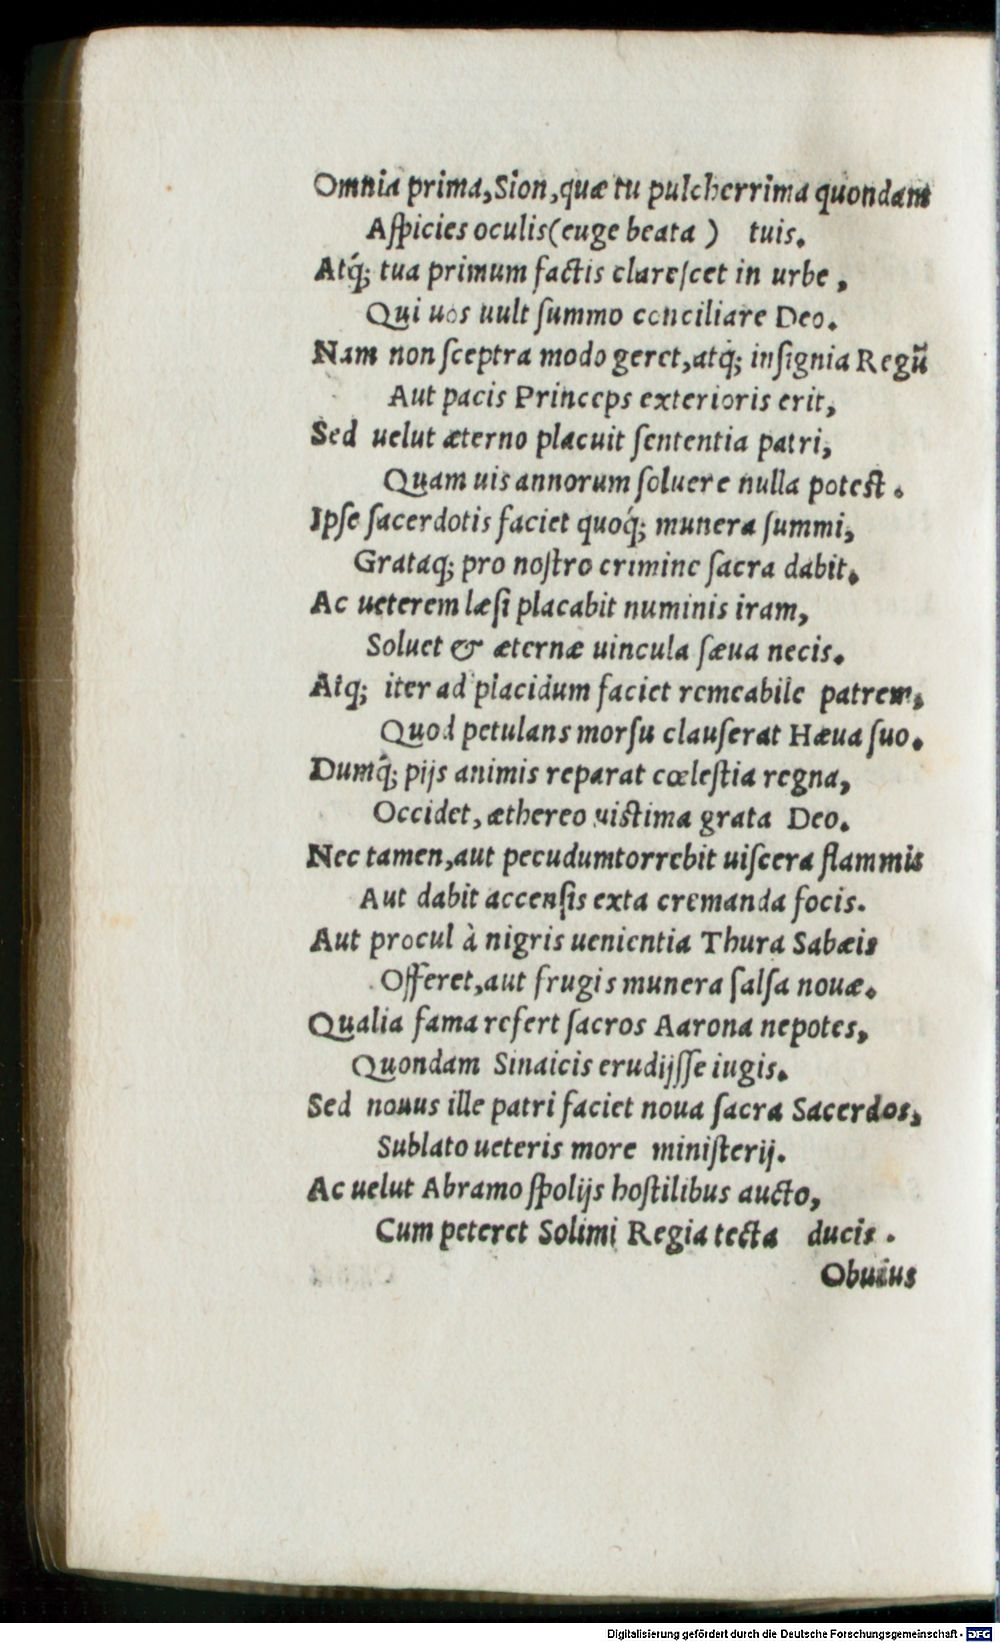 Omnia prima, Sion, quæ tu pulcherrima quondam
Aſpicies oculis (euge beata ) tuis.
Atq́; tua primum factis clareſcet in urbe,
Qui uos uult ſummo conciliare Deo.
Nam non ſceptra modo geret, atq́; inſignia Regū
Aut pacis Princeps exterioris erit,
Sed uelut æterno placuit ſententia patri,
Quam uis annorum ſoluere nulla poteſt.
Ipſe ſacerdotis faciet quoq́; munera ſummi,
Grataq́; pro noſtro crimine ſacra dabit.
Ac ueterem læſi placabit numinis iram,
Soluet & æternæ uincula ſæua necis.
Atq; iter ad placidum faciet remeabile patrem,
Quod petulans morſu clauſerat Hæua ſuo.
Dumq́; pijs animis reparat cœleſtia regna,
Occidet, æthereo uictima grata Deo.
Nec tamen, aut pecudumtorrebit uiſcera flammis
Aut dabit accenſis exta cremanda focis.
Aut procul à nigris uenientia Thura Sabæis
Offeret, aut frugis munera ſalſa nouæ.
Qualia fama refert ſacros Aarona nepotes,
Quondam Sinaicis erudijſſe iugis.
Sed nouus ille patri faciet noua ſacra Sacerdos,
Sublato ueteris more miniſterij.
Ac uelut Abramo ſpolijs hoſtilibus aucto,
Cum peteret Solimi Regia tecta ducis.
Obuius
Digitalisierung gefördert durch die Deutsche Forschungsgemeinschaft - DFG